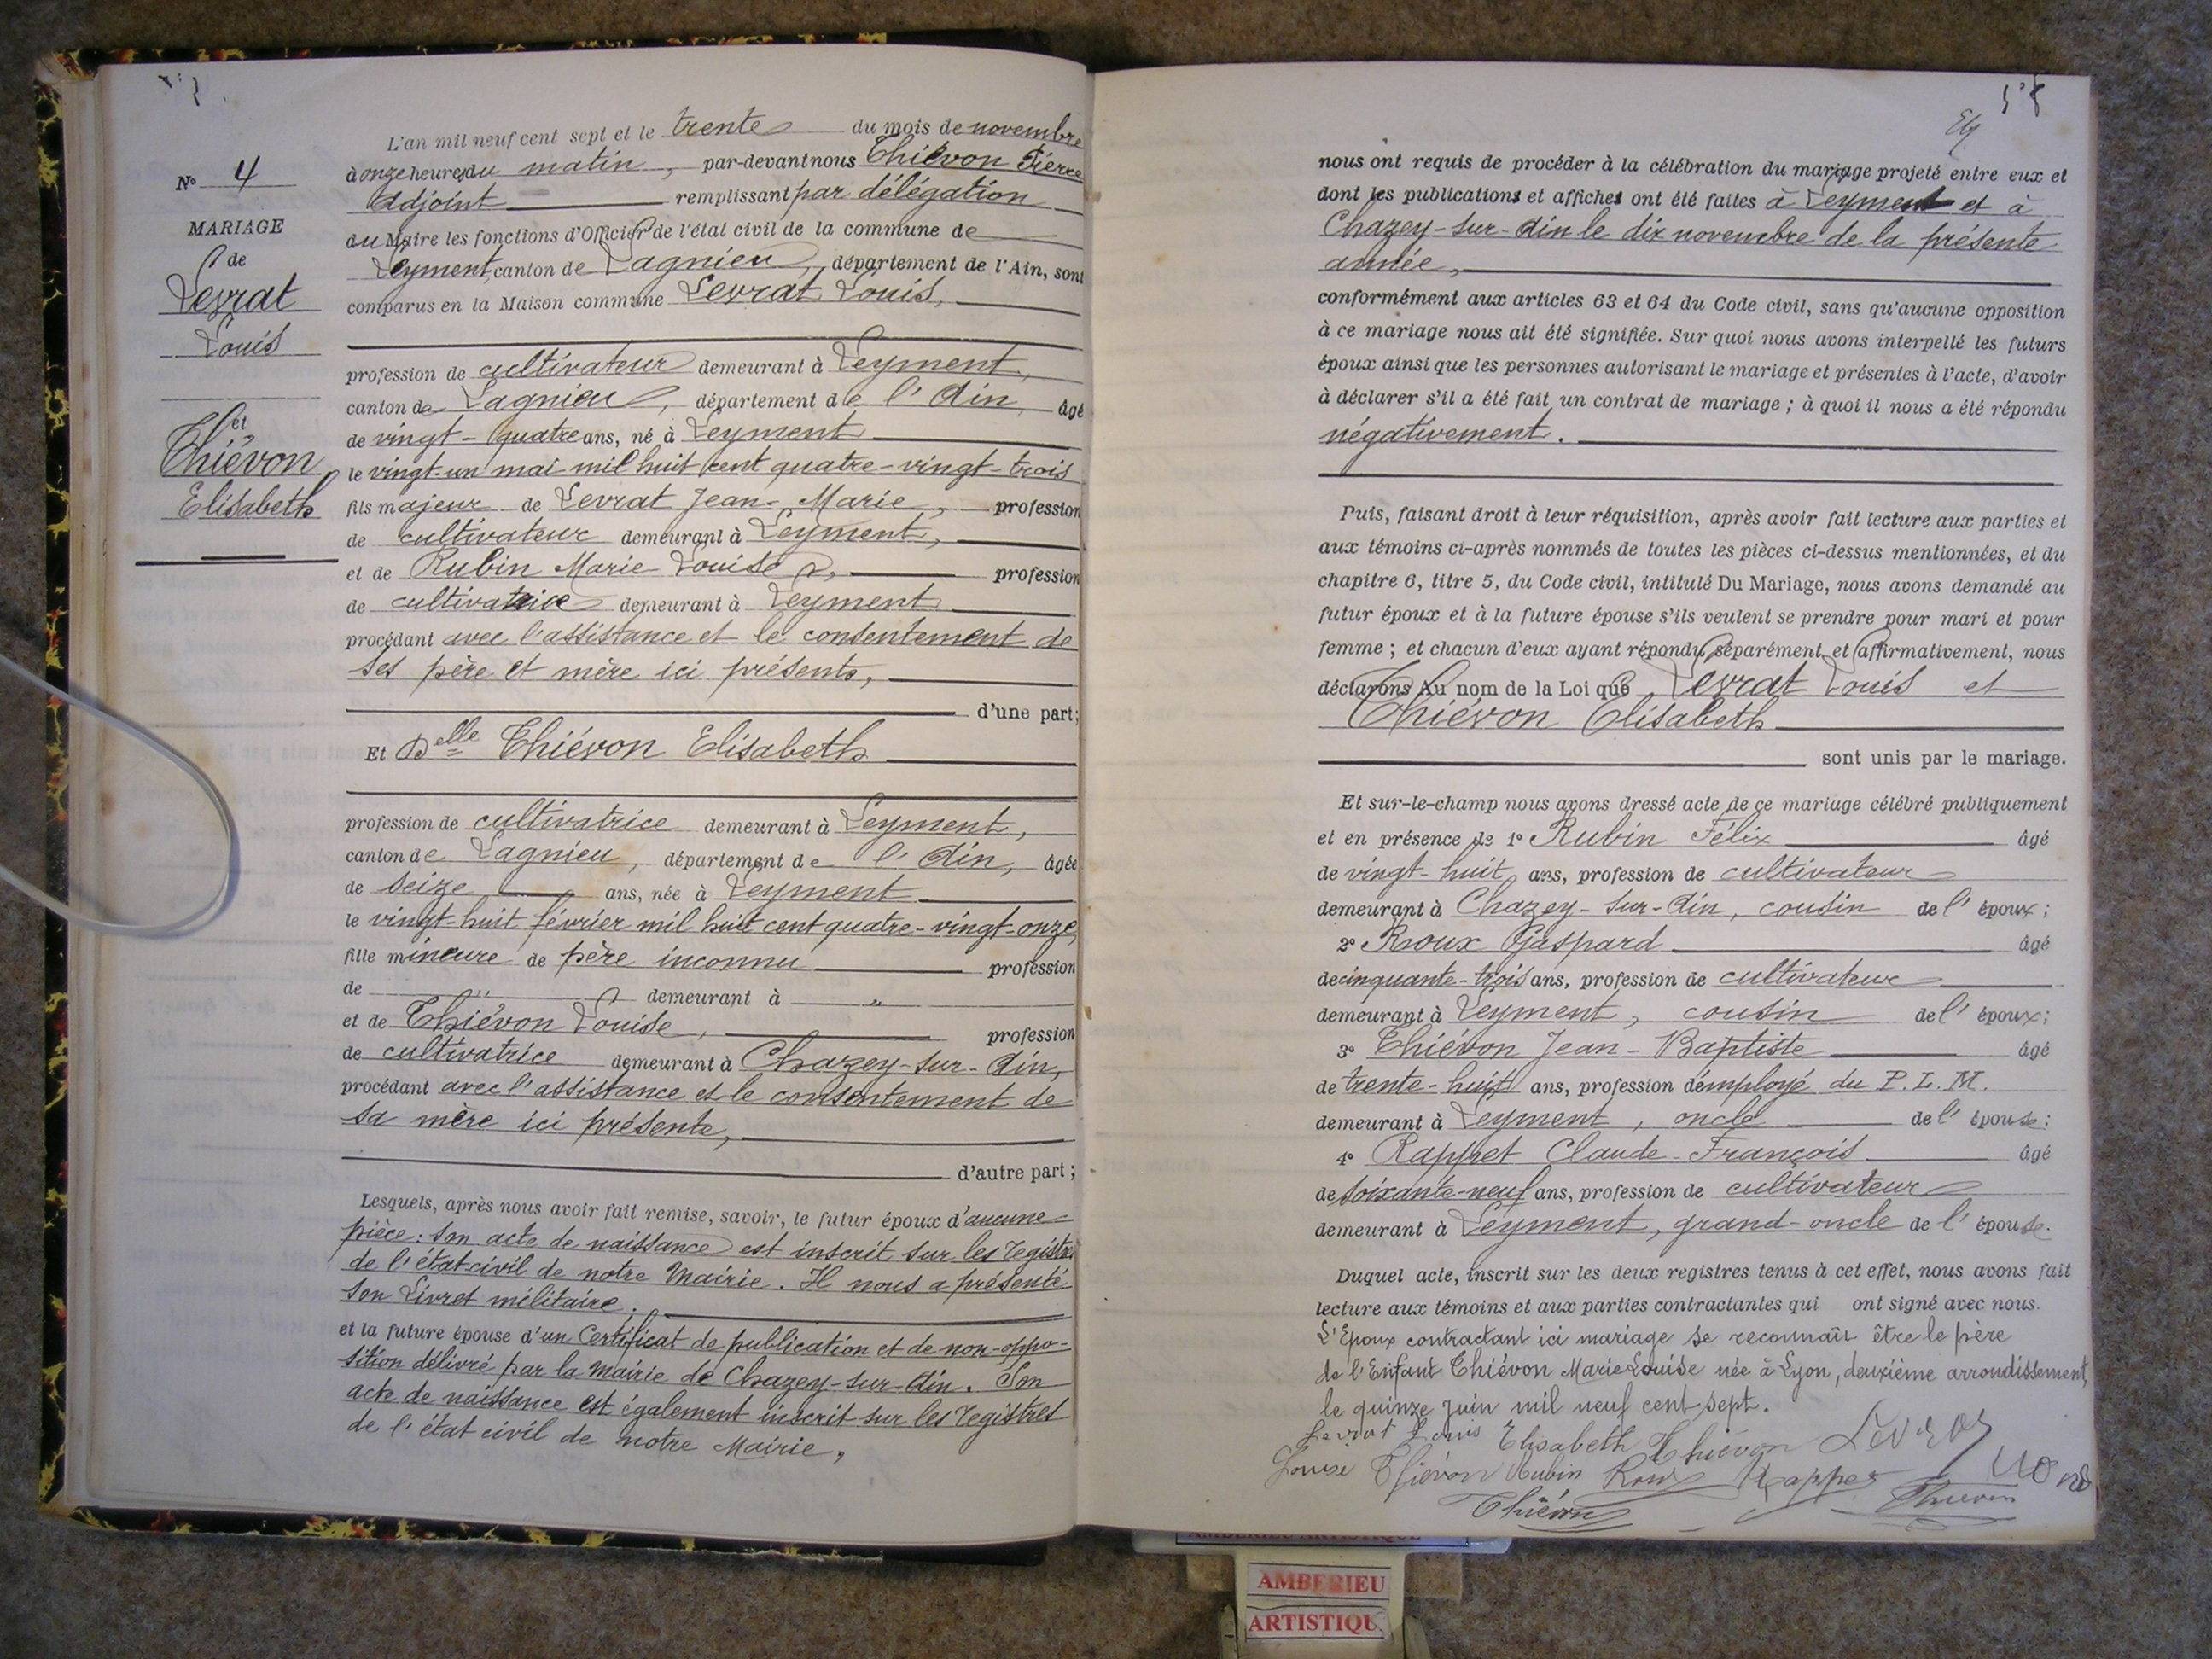 N° 4
MARIAGE
de
Levrat
Louis
et
Thiévon
Elisabeth
L'an mil neuf cent sept et le trente du mois de novembre
à onze heures du matin, par-devant nous Thiévon Pierre
adjoint remplissant par délégation
du Maire les fonctions d'Officier de l'état civil de la commune de
Leyment, canton de Lagnieu, département de l'Ain, sont
comparus en la Maison commune Levrat Louis,
profession de cultivateur demeurant à Leyment,
canton de Lagnieu, département de l'Ain, âgé
de vingt-quatre ans, né à Leyment
le vingt-un mai mil huit cent quatre-vingt-trois
fils majeur de Levrat Jean-Marie, profession
de cultivateur demeurant à Leyment,
et de Rubin Marie Louise, profession
de cultivatrice demeurant à Leyment
procédant avec l'assistance et le consentement de
ses père et mère ici présents,
d'une part;
Et Delle Thiévon Elisabeth
profession de cultivatrice demeurant à Leyment,
canton de Lagnieu, département de l'Ain, âgée
de seize ans, née à Leyment
le vingt-huit février mil huit cent quatre-vingt-onze,
fille mineure de père inconnu profession
de " demeurant à "
et de Thiévon Louise, profession
de cultivatrice demeurant à Chazey-sur-Ain,
procédant avec l'assistance et le consentement de
sa mère ici présente,
d'autre part;
Lesquels, après nous avoir fait remise, savoir, le futur époux d'aucune
pièce: son acte de naissance est inscrit sur les registres
de l'état-civil de notre Mairie. Il nous a présenté
son Livret militaire.
et la future épouse d'un Certificat de publication et de non-oppo-
sition délivré par la mairie de Chazey-sur-Ain. Son
acte de naissance est également inscrit sur les registres
de l'état civil de notre Mairie,
nous ont requis de procéder à la célébration du mariage projeté entre eux et
dont les publications et affiches ont été faites à Leyment et à
Chazey-sur-Ain le dix novembre de la présente
année,
conformément aux articles 63 et 64 du Code civil, sans qu'aucune opposition
à ce mariage nous ait été signifiée. Sur quoi nous avons interpellé les futurs
époux ainsi que les personnes autorisant le mariage et présentes à l'acte, d'avoir
à déclarer s'il a été fait un contrat de mariage; à quoi il nous a été répondu
négativement.
Puis, faisant droit à leur réquisition, après avoir fait lecture aux parties et
aux témoins ci-après nommés de toutes les pièces ci-dessus mentionnées, et du
chapitre 6, titre 5, du Code civil, intitulé Du Mariage, nous avons demandé au
futur époux et à la future épouse s'ils veulent se prendre pour mari et pour
femme; et chacun d'eux ayant répondu séparément et affirmativement, nous
déclarons Au nom de la Loi que Levrat Louis et
Thiévon Elisabeth
sont unis par le mariage.
Et sur-le-champ nous avons dressé acte de ce mariage célébré publiquement
et en présence de 1° Rubin Félix âgé
de vingt-huit ans, profession de cultivateur
demeurant à Chazey-sur-Ain, cousin de l'époux;
2° Roux Gaspard âgé
de cinquante-trois ans, profession de cultivateur
demeurant à Leyment, cousin de l'époux;
3° Thiévon Jean-Baptiste âgé
de trente-huit ans, profession d'employé du P. L. M.
demeurant à Leyment, oncle de l'épouse:
4° Rappet Claude-François âgé
de soixante-neuf ans, profession de cultivateur
demeurant à Leyment, grand-oncle de l'épouse.
Duquel acte, inscrit sur les deux registres tenus à cet effet, nous avons fait
lecture aux témoins et aux parties contractantes qui ont signé avec nous.
L'Epoux contractant ici mariage se reconnaît être le père
de l'Enfant Thiévon Marie Louise née à Lyon, deuxième arrondissement,
le quinze juin mil neuf cent sept.
Levrat Louis Elisabeth Thiévon
Louise Thiévon Rubin Roux Rappet
Thiévon Thiévon
AMBERIEU ARTISTIQUE
AMBERIEU
ARTISTIQU